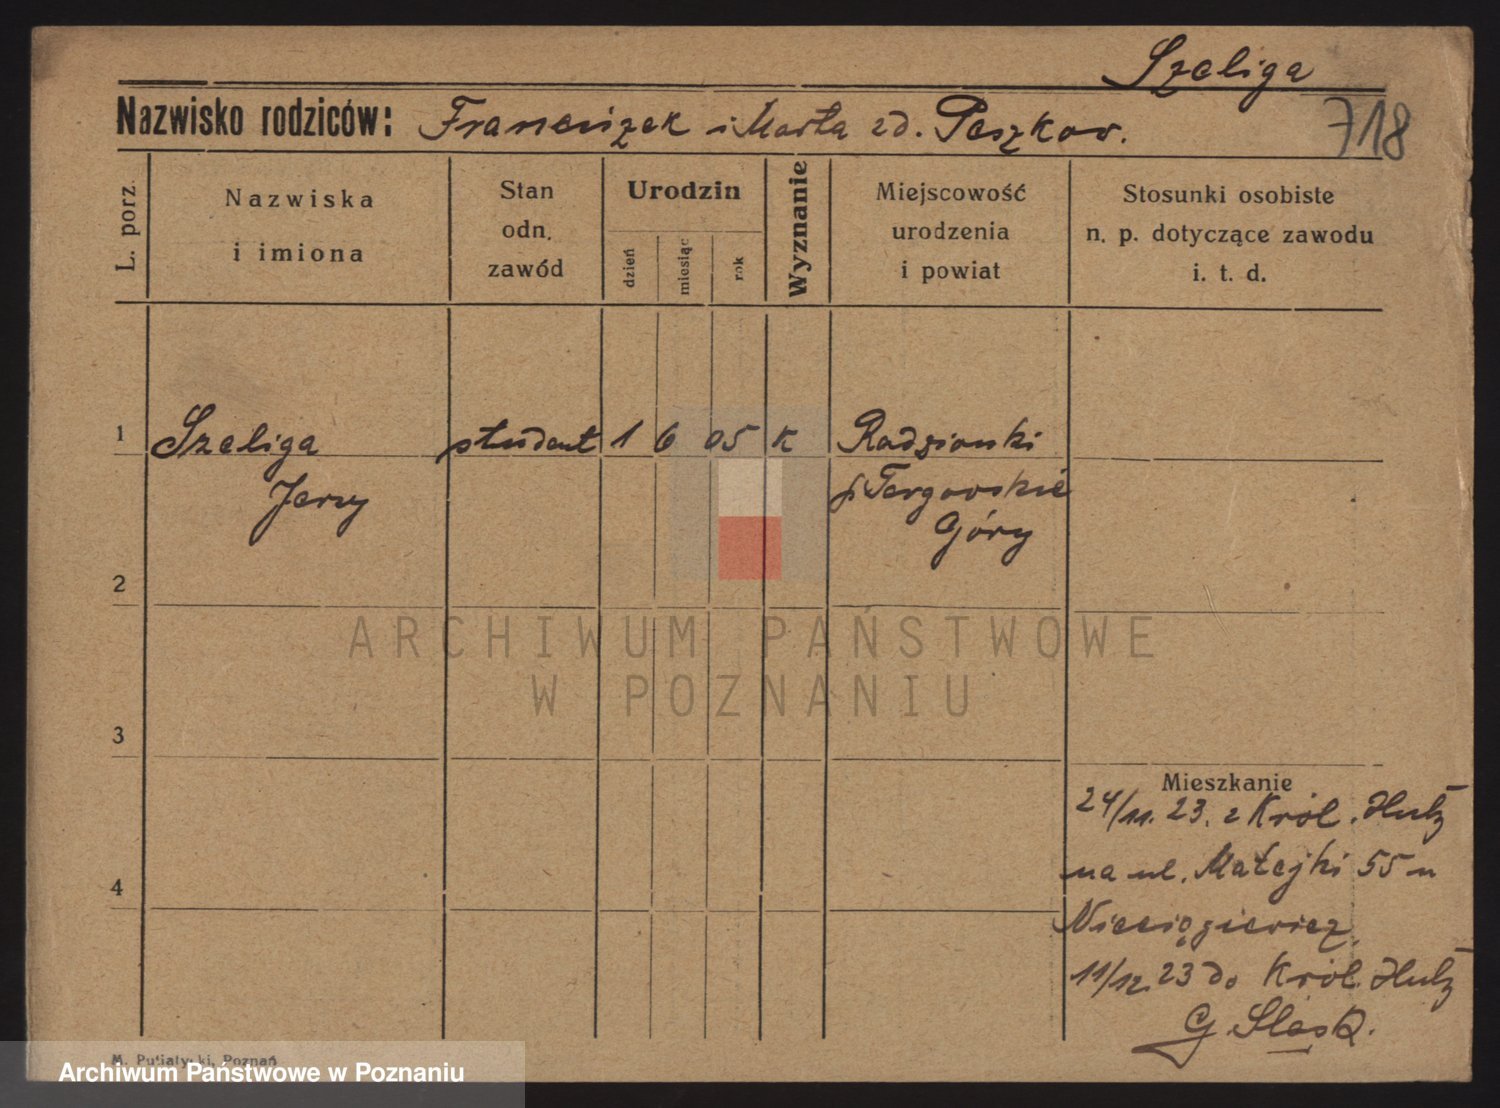 Szeliga
Nazwisko rodziców: Franciszek i Marta zd. Peszkow.
718
L. porz.
Nazwiska
i imiona
Stan
odn.
zawód
Urodzin
dzień
miesiąc
rok
Wyznanie
Miejscowość
urodzenia
i powiat
Stosunki osobiste
n. p. dotyczące zawodu
i. t. d.
1 Szeliga student 1 6 05 K Radzionki
Jerzy
p. Tergowskie
Góry
2
ARCHIWUM PAŃSTWOWE
W POZNANIU
3
Mieszkanie
24/11. 23. z Król. Huty
na ul. Matejki 55 u
11/12. 23 do Król. Huty
G. Śląsk.
4
M. Putiatycki, Poznań
Archiwum Państwowe w Poznaniu